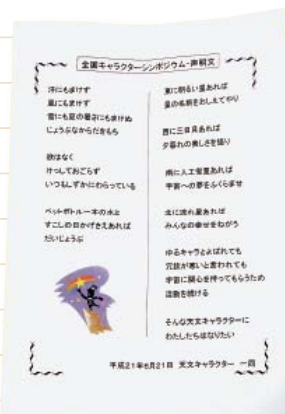 全国キャラクターシンポジウム-声明文
汗にもまけず
風にもまけず
雪にも夏の暑さにもまけぬ
じょうぶなからだをもち
欲はなく
けっしておこらず
いつもしずかにわらっている
ペットボトル一本の水と
すこしの日かげさえあれば
だいじょうぶ
東に明るい星あれば
星の名前をおしえてやり
西に三日月あれば
夕暮れの美しさを語り
南に人工衛星あれば
宇宙への夢をふくらませ
北に流れ星あれば
みんなの幸せをねがう
ゆるキャラとよばれても
冗談が寒いと言われても
宇宙に関心を持ってもらうため
活動を続ける
そんな天文キャラクターに
わたしたちはなりたい
平成21年6月21日 天文キャラクター 一同